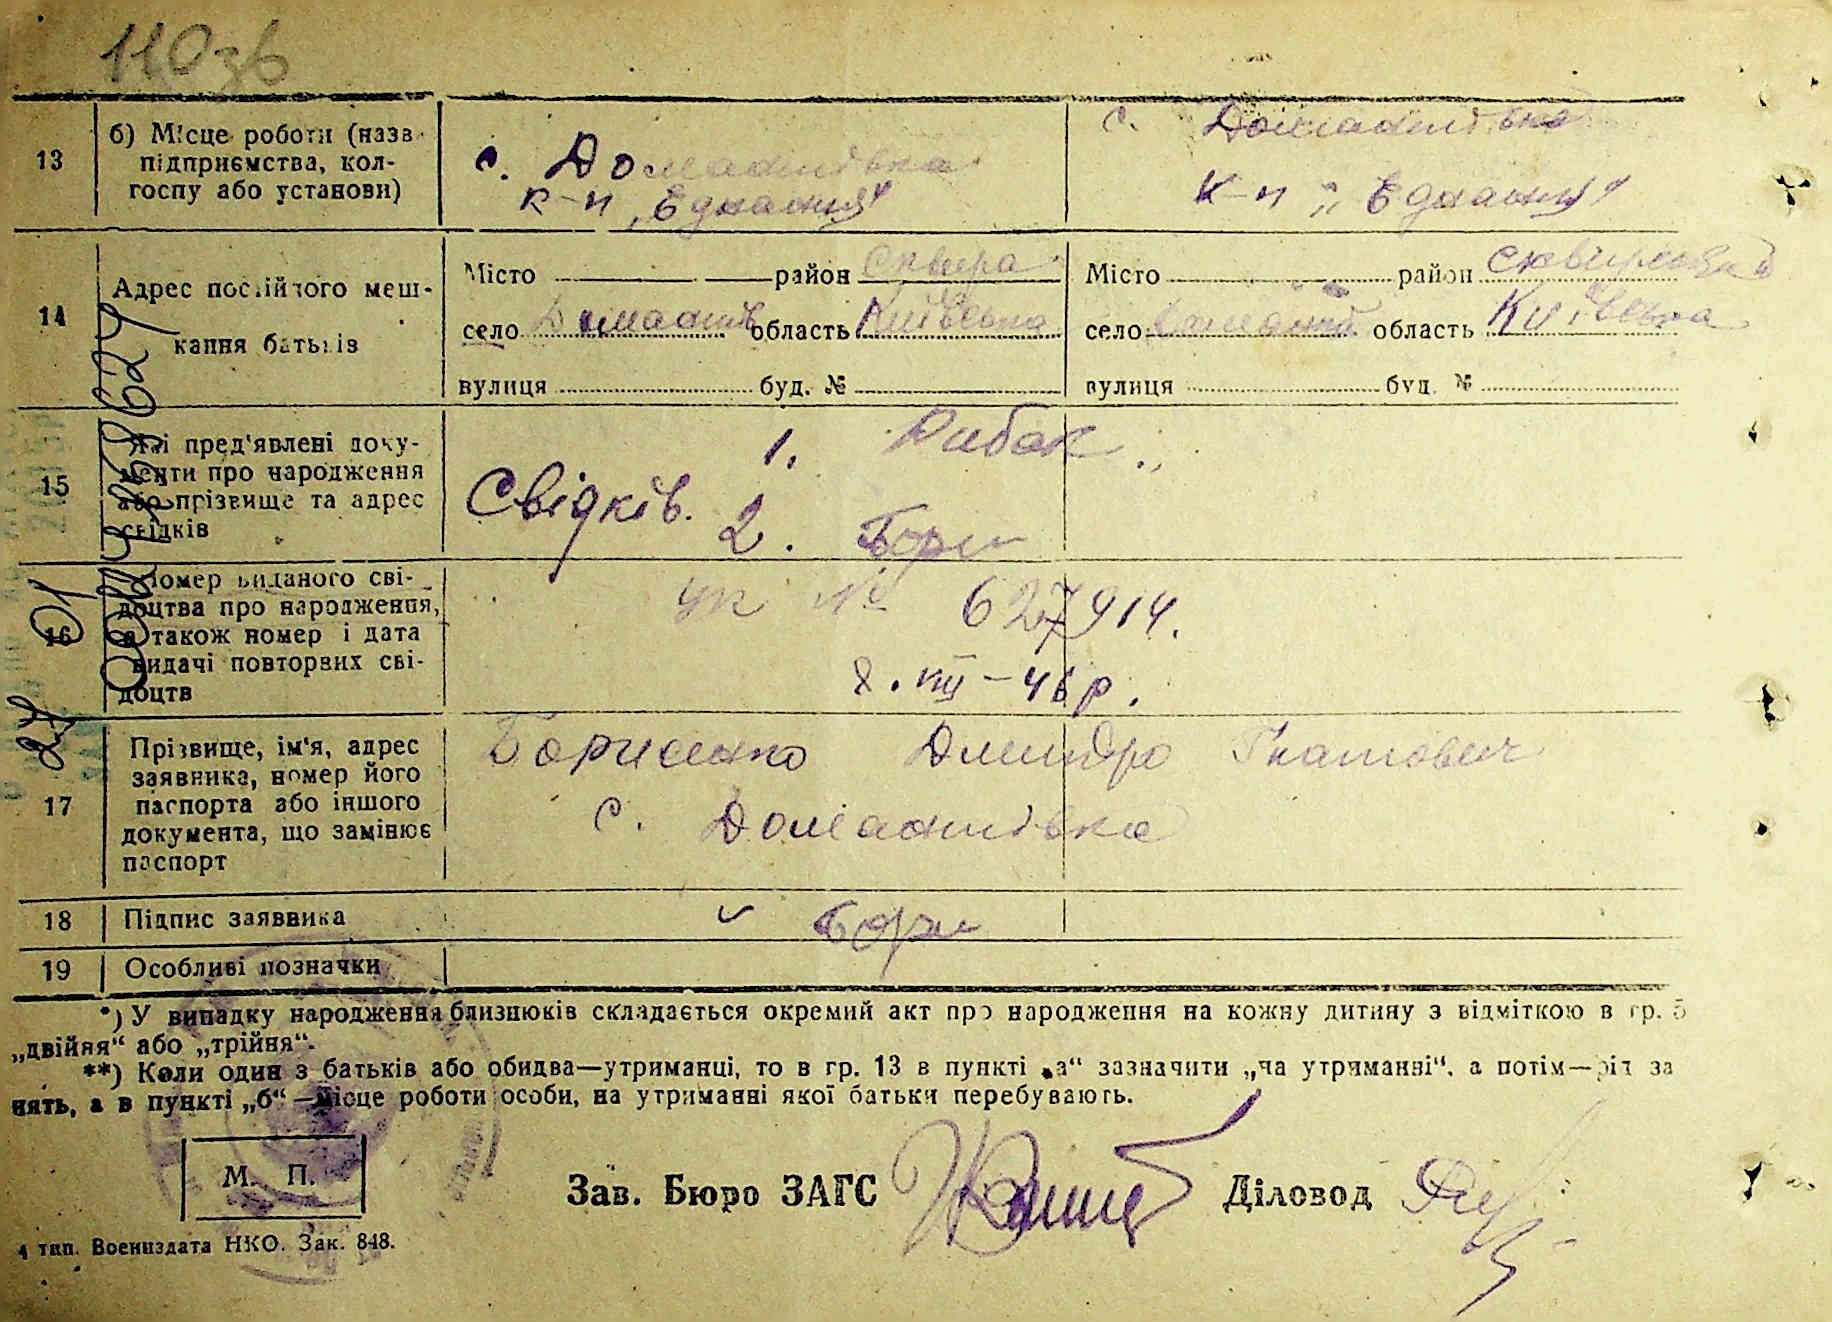 110зв
13
б) Місце роботи (назв
підприємства, кол-
госпу або установи)
с. Домантівка
к-п „Єднання"
с. Домантівка
к-п „Єднання"
14
Адрес постійного меш-
кання батьків
Місто район Сквира
село область Київська
вулиця буд. №
Місто район Сквирський
село область Київська
вулиця буд. №
15
Які пред'явлені доку-
менти про народження
або прізвище та адрес
свідків
Свідків.
1. Рибак
2. Бори
16
Номер виданого сві-
доцтва про народження,
а також номер і дата
видачі повторних сві-
доцтв
№ 627914.
8. XII – 46 р.
17
Прізвище, ім'я, адрес
заявника, номер його
паспорта або іншого
документа, що замінює
паспорт
Борисенко Дмитро Гнатович
с. Домантівка
18
Підпис заявника
Бори
19
Особливі позначки
*) У випадку народження близнюків складається окремий акт про народження на кожну дитину з відміткою в гр. 5
„двійня" або „трійня".
**) Коли один з батьків або обидва—утриманці, то в гр. 13 в пункті „а" зазначити „на утриманні", а потім—рід за
нять, а в пункті „б"—місце роботи особи, на утриманні якої батьки перебувають.
М. П.
Зав. Бюро ЗАГС
Діловод
4 тип. Воениздата НКО. Зак. 848.